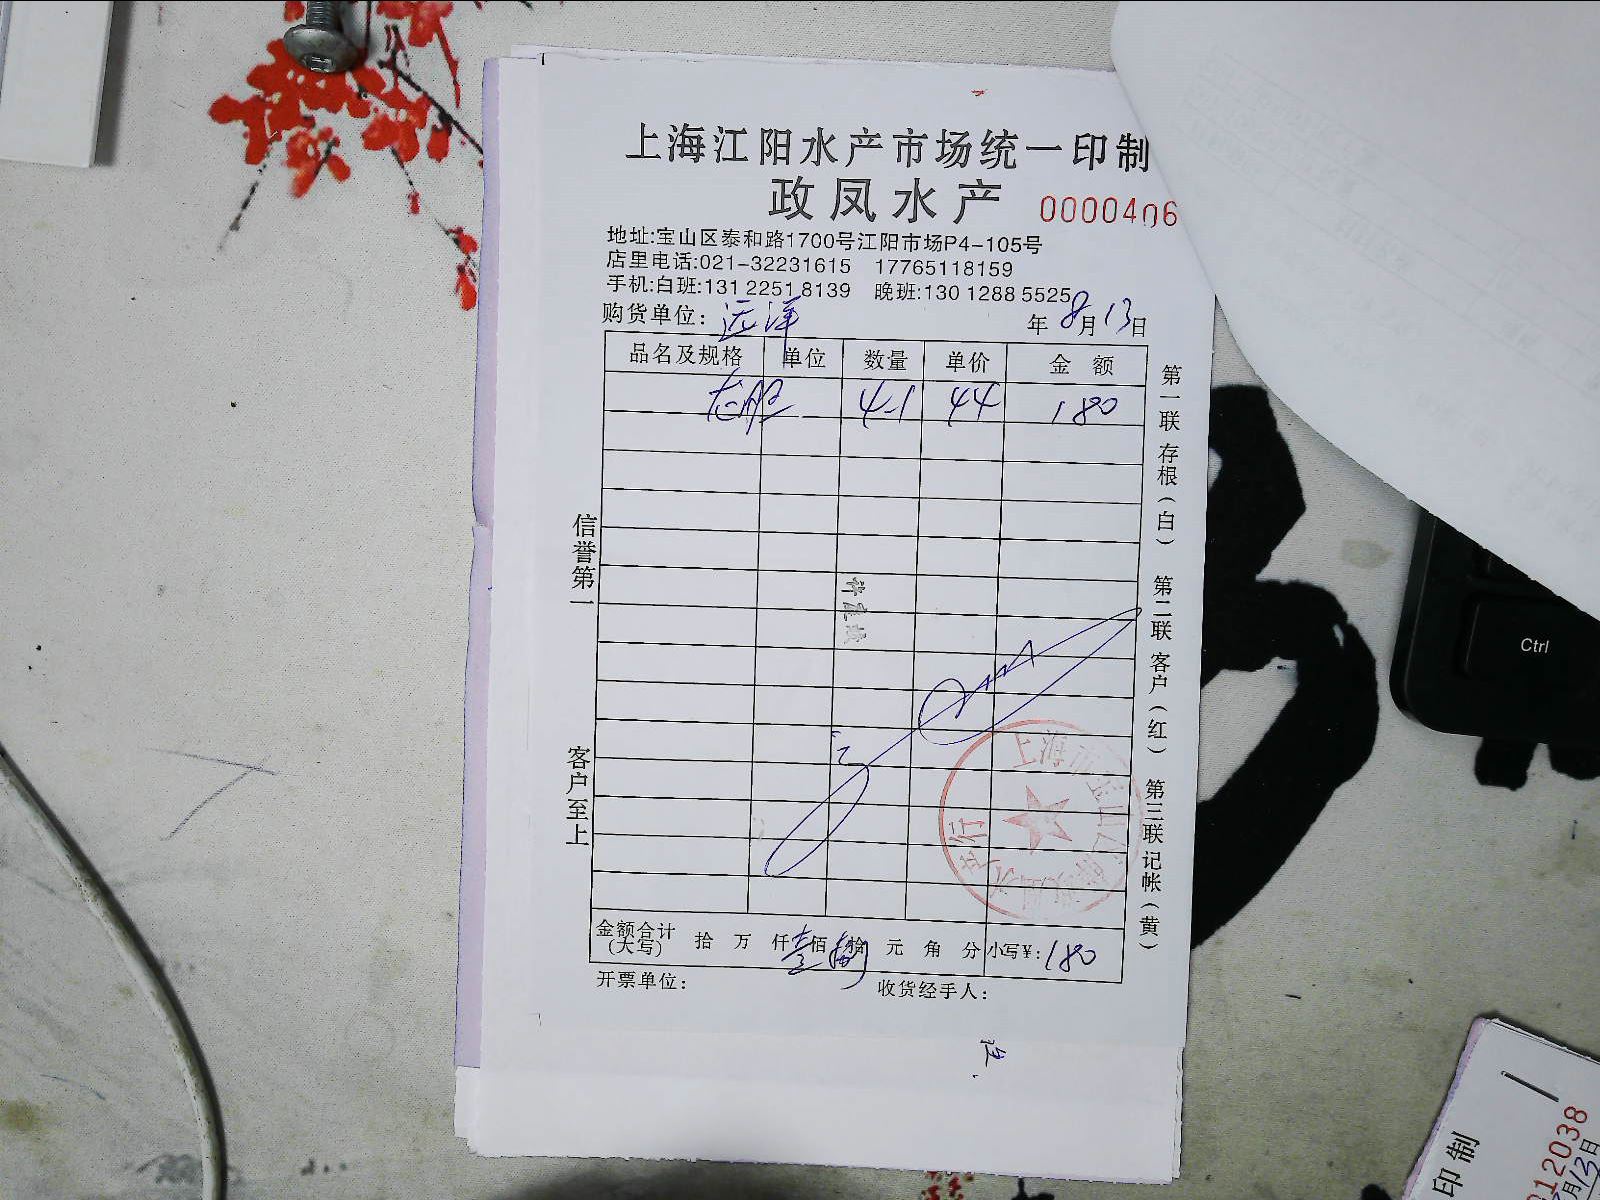 上海江阳水产市场统一印制
政凤水产
0000406
地址:宝山区泰和路1700号江阳市场P4-105号
店里电话:021-32231615 17765118159
手机:白班:131 2251 8139 晚班:130 1288 5525
购货单位: 远洋 年 8月13日
品名及规格 单位 数量 单价 金额
4-1 44 180
信誉第一
客户至上
第一联 存根(白) 第二联 客户(红) 第三联 记帐(黄)
金额合计(大写) 拾 万 仟 壹佰 捌拾 元 角 分 小写¥: 180
开票单位: 收货经手人:
Ctrl
印制
012038
月13日